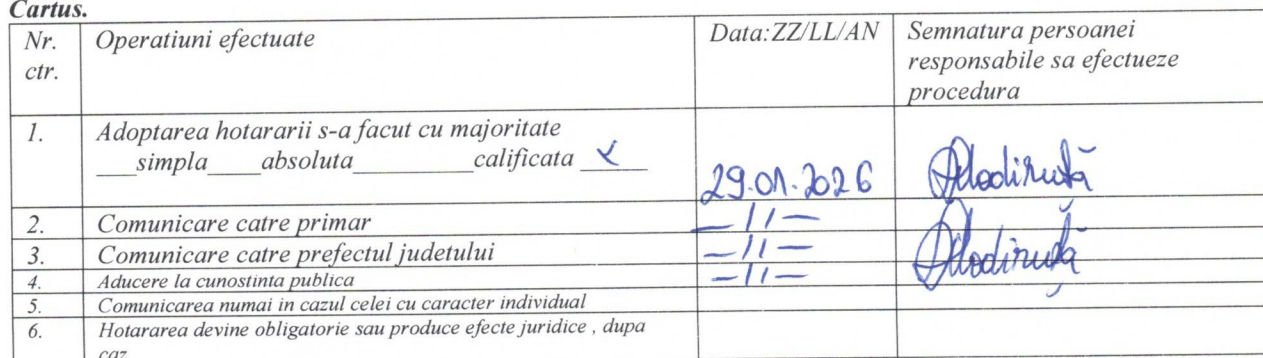 Cartus.
Nr. ctr. Operatiuni efectuate Data:ZZ/LL/AN Semnatura persoanei responsabile sa efectueze procedura
1. Adoptarea hotararii s-a facut cu majoritate
___simpla____absoluta_________calificata __x___ 29.01.2026
2. Comunicare catre primar —//—
3. Comunicare catre prefectul judetului —//—
4. Aducere la cunostinta publica —//—
5. Comunicarea numai in cazul celei cu caracter individual
6. Hotararea devine obligatorie sau produce efecte juridice , dupa
caz